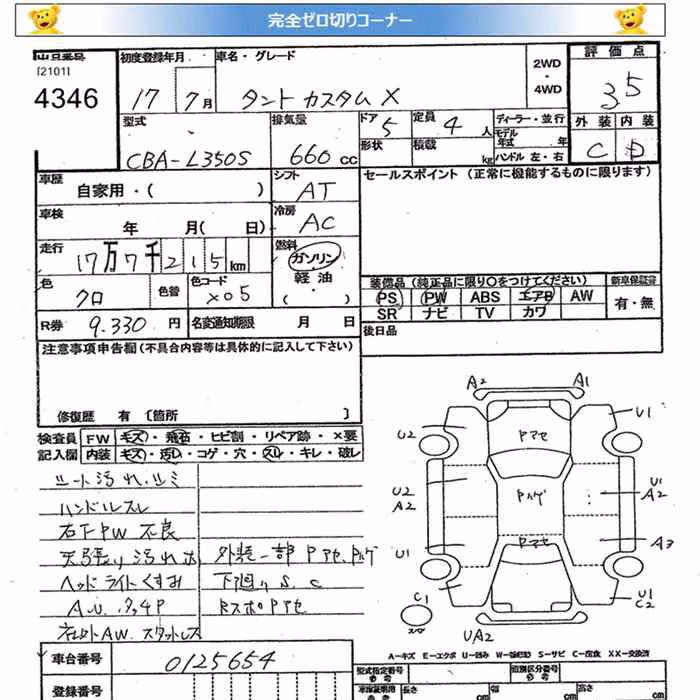 完全ゼロ切りコーナー
出品番号 初度登録年月 車名・グレード 2WD ・ 4WD 評価点
[2101]
4346 17 7月 タント カスタム X 35
型式 排気量 ドア 5 定員 4 人 ディーラー・並行 外装 内装
CBA-L350S 660 cc 形状 積載 kg モデル年式 年 ハンドル 左・右 C D
車歴 シフト セールスポイント (正常に機能するものに限ります)
自家用・( ) AT
車検 冷房
年 月( 日) AC
走行 燃料
17万7千215km ガソリン
軽油
・
( )
色 色替 色コード
クロ X05
装備品 (純正品に限り○をつけてください) 新車保証書
PS PW ABS エアB AW 有・無
SR ナビ TV カワ
R券 9.330 円 名変通知期限 月 日 後日品
注意事項申告欄 (不具合内容等は具体的に記入して下さい)
修復歴 有 〔箇所 〕
検査員 FW キズ・飛石・ヒビ割・リペア跡・×要
記入欄 内装 キズ・汚レ・コゲ・穴・スレ・キレ・破レ
シート汚れ.シミ
ハンドルスレ
右下PW不良
天張り汚れ 外装一部Pアセ.Pハゲ
ヘッドライトくすみ 下廻りS.C
RスポPアセ
社外AW.スタットレス
A2 A1
U2 Pアセ U1
U2 A2 Pハゲ U1 A2
U1 Pアセ A3
C1 U1 C2
スペア UA2
A-キズ E-エクボ U-凹み W-補修跡 S-サビ C-腐食 XX-交換済
車台番号 0125654 型式指定番号 類別区分番号
参考 参考
登録番号 長さ cm 幅 cm 高さ cm